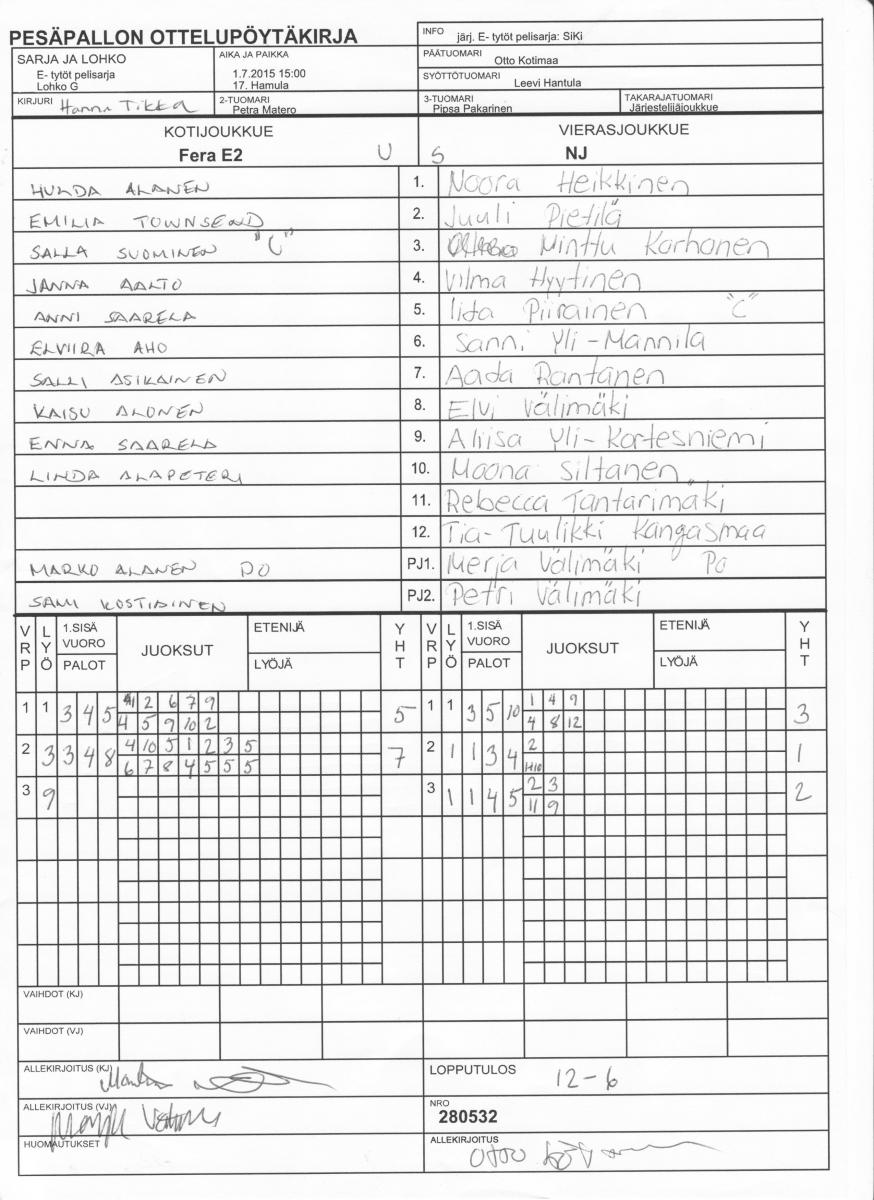 PESÄPALLON OTTELUPÖYTÄKIRJA
INFO järj. E- tytöt pelisarja: SiKi
SARJA JA LOHKO
E- tytöt pelisarja
Lohko G
AIKA JA PAIKKA
1.7.2015 15:00
17. Hamula
PÄÄTUOMARI
Otto Kotimaa
SYÖTTÖTUOMARI
Leevi Hantula
KIRJURI Hannu Tikka
2-TUOMARI
Petra Matero
3-TUOMARI
Pipsa Pakarinen
TAKARAJATUOMARI
Järjestelijäjoukkue
KOTIJOUKKUE VIERASJOUKKUE
Fera E2 U S NJ
HULDA ALANEN 1. Noora Heikkinen
EMILIA TOWNSEND 2. Juuli Pietilä
SALLA SUOMINEN "C" 3. Minttu Korhonen
JANNA AALTO 4. Vilma Hyytinen
ANNI SAARELA 5. Iida Piirainen "C"
ELVIIRA AHO 6. Sanni Yli-Mannila
SALLI ASIKAINEN 7. Aada Rantanen
KAISU ALONEN 8. Elvi Välimäki
ENNA SAARELA 9. Aliisa Yli-Kortesniemi
LINDA ALAPETERI 10. Moona Siltanen
11. Rebecca Tantarimäki
12. Tia-Tuulikki Kangasmaa
MARKO ALANEN PO PJ1. Merja Välimäki Po
SAMI KOSTIAINEN PJ2. Petri Välimäki
VRP LYÖ 1.SISÄ VUORO PALOT JUOKSUT ETENIJÄ LYÖJÄ YHT VRP LYÖ 1.SISÄ VUORO PALOT JUOKSUT ETENIJÄ LYÖJÄ YHT
1 1 3 4 5 1 2 6 7 9 5 1 1 3 5 10 1 4 9 3
4 5 9 10 2 4 8 12
2 3 3 4 8 4 10 5 1 2 3 5 7 2 1 1 3 4 2 1
6 7 8 4 5 5 5 H10
3 9 3 1 1 4 5 2 3 2
11 9
VAIHDOT (KJ)
VAIHDOT (VJ)
ALLEKIRJOITUS (KJ)
LOPPUTULOS 12-6
ALLEKIRJOITUS (VJ)
NRO
280532
HUOMAUTUKSET
ALLEKIRJOITUS
Otto